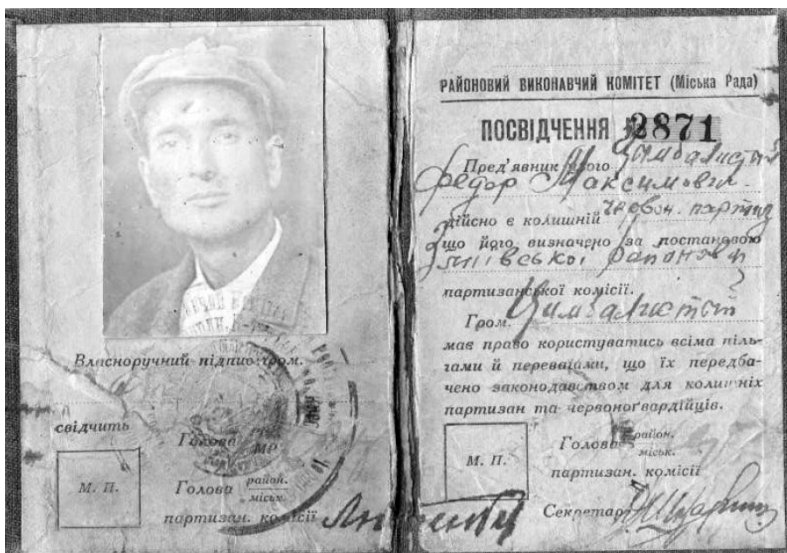 Власноручний підпис гром.
свідчить
Голова РВК
МР
М. П.
Голова район.
міськ.
партизан. комісії
РАЙОНОВИЙ ВИКОНАВЧИЙ КОМІТЕТ (Міська Рада)
ПОСВІДЧЕННЯ № 2871
Пред'явник цього Цымбалистый
Федор Максимович
дійсно є колишній червон. партиз
що його визначено за постановою
районової
партизанської комісії.
Гром. Цимбалистый
має право користуватись всіма піль-
гами й перевагами, що їх передба-
чено законодавством для колишніх
партизан та червоноґвардійців.
Голова район.
міськ.
М. П.
партизан. комісії
Секретар